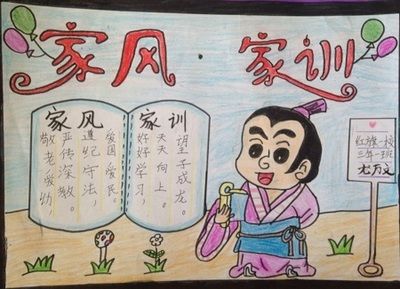 家风 家训
家风
爱国爱民。
遵纪守法,
严传深教。
敬老爱幼
家训
望子成龙。
天天向上。
好好学习,
红旗一校
三年一班